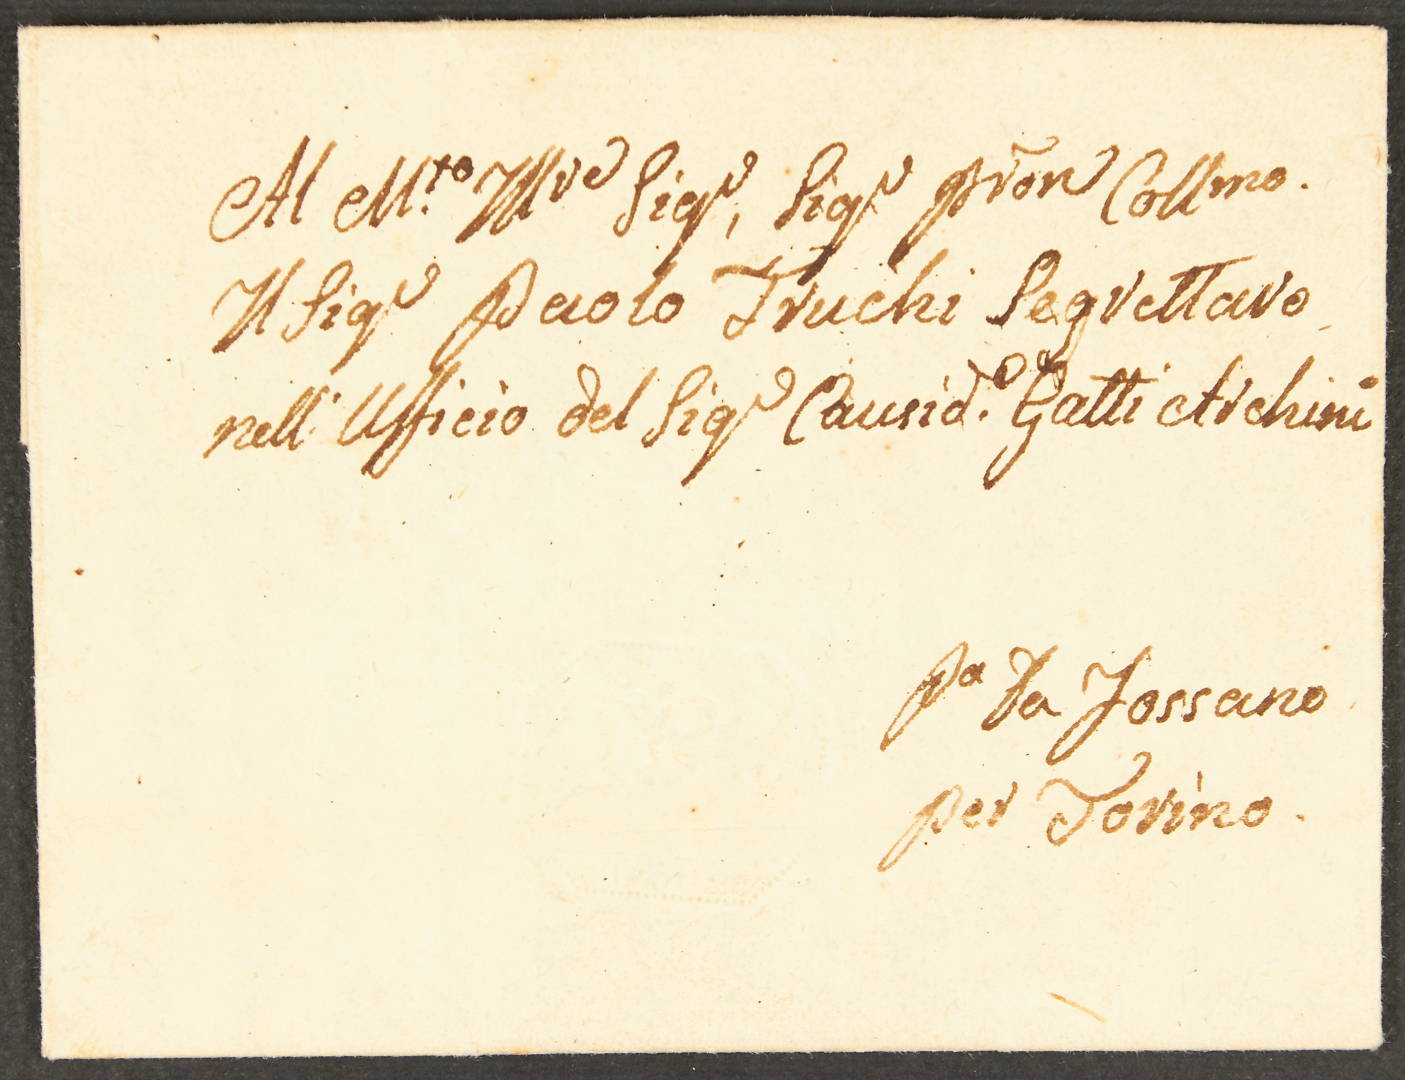 Al M.to Ill.re Sig.r, Sig.r Pron Coll.mo.
Il Sig.r Paolo Truchi Segrettaro
nell' Ufficio del Sig.r Causid.o Gatti Archini
p.a Da Fossano
per Torino.